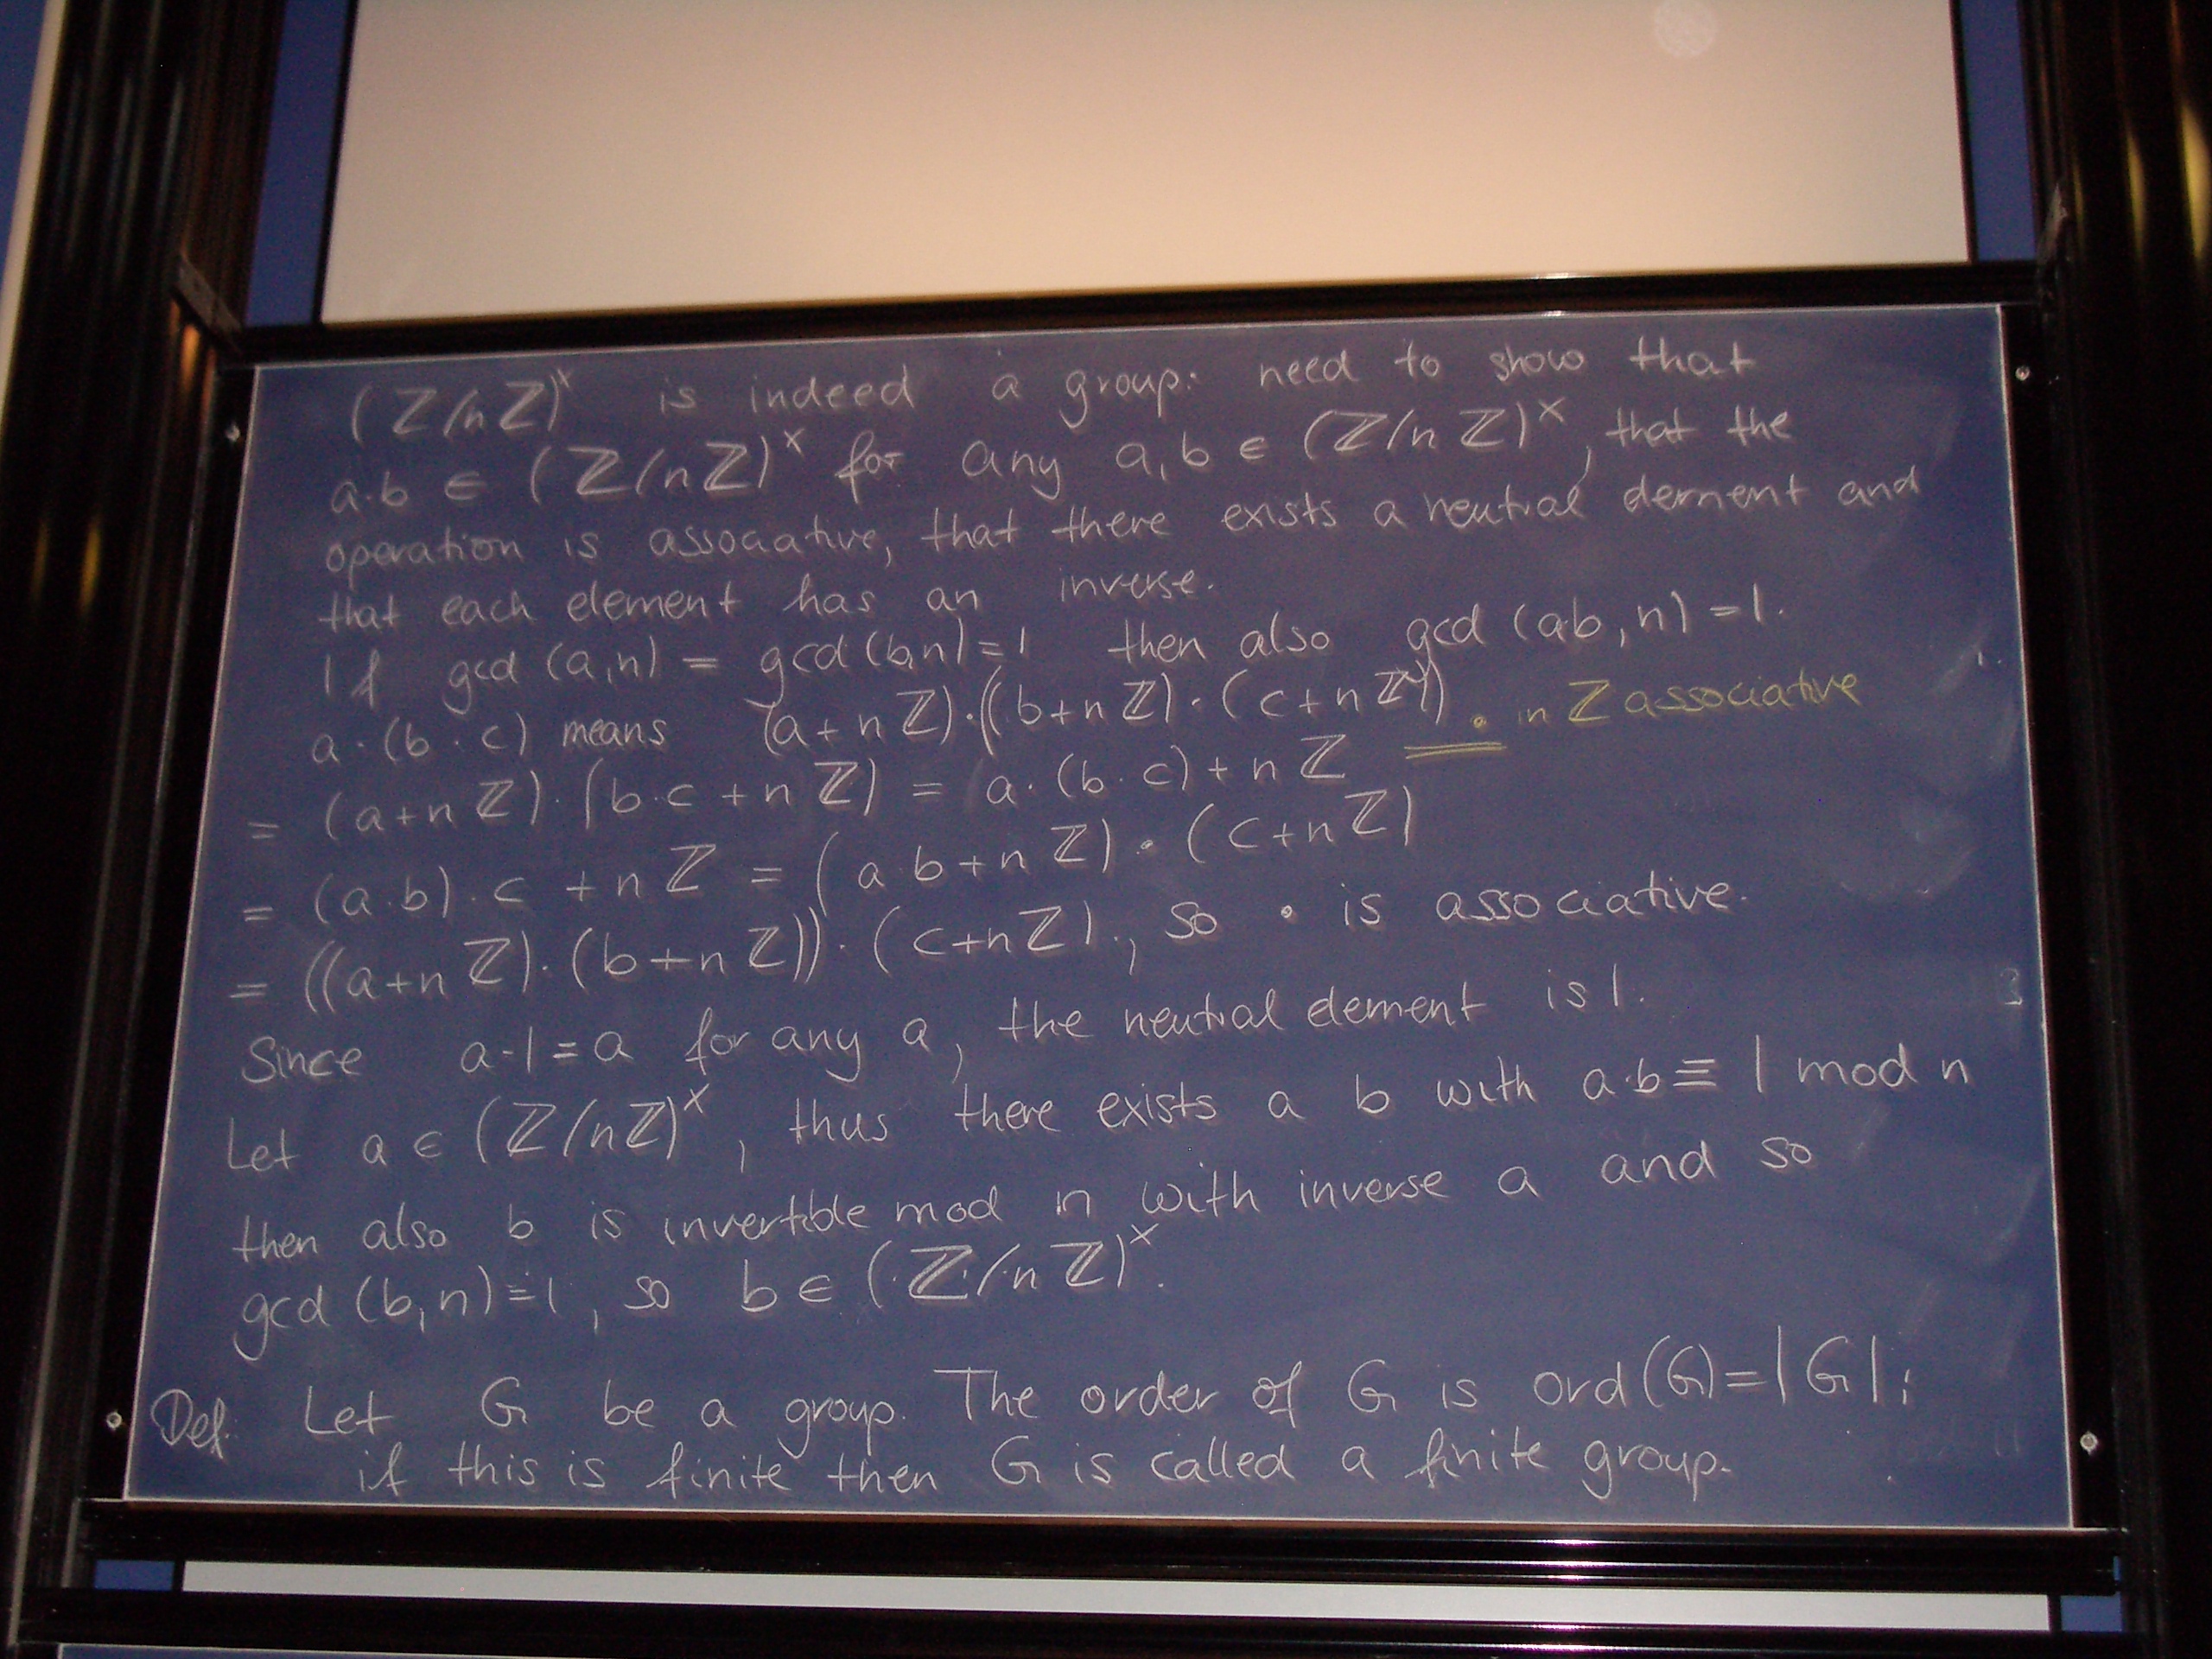 (ℤ/nℤ)^× is indeed a group: need to show that
a·b ∈ (ℤ/nℤ)^× for any a,b ∈ (ℤ/nℤ)^×, that the
operation is associative, that there exists a neutral element and
that each element has an inverse.
If gcd(a,n) = gcd(b,n)=1 then also gcd(ab,n)=1.
a·(b·c) means (a+nℤ)·((b+nℤ)·(c+nℤ))
= (a+nℤ)·(b·c+nℤ) = a·(b·c)+nℤ = · in ℤ associative
= (a·b)·c+nℤ = (a b+nℤ)·(c+nℤ)
= ((a+nℤ)·(b+nℤ))·(c+nℤ)., so · is associative.
Since a·1=a for any a, the neutral element is 1.
Let a ∈ (ℤ/nℤ)^×, thus there exists a b with a·b≡1 mod n
then also b is invertible mod n with inverse a and so
gcd(b,n)=1, so b ∈ (ℤ/nℤ)^×.
Def. Let G be a group. The order of G is ord(G)=|G|;
if this is finite then G is called a finite group.